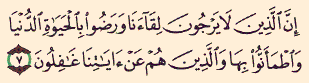 إِنَّ ٱلَّذِينَ لَا يَرْجُونَ لِقَآءَنَا وَرَضُوا۟ بِٱلْحَيَوٰةِ ٱلدُّنْيَا
وَٱطْمَأَنُّوا۟ بِهَا وَٱلَّذِينَ هُمْ عَنْ ءَايَٰتِنَا غَٰفِلُونَ ٧